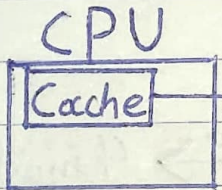 CPU
Cache